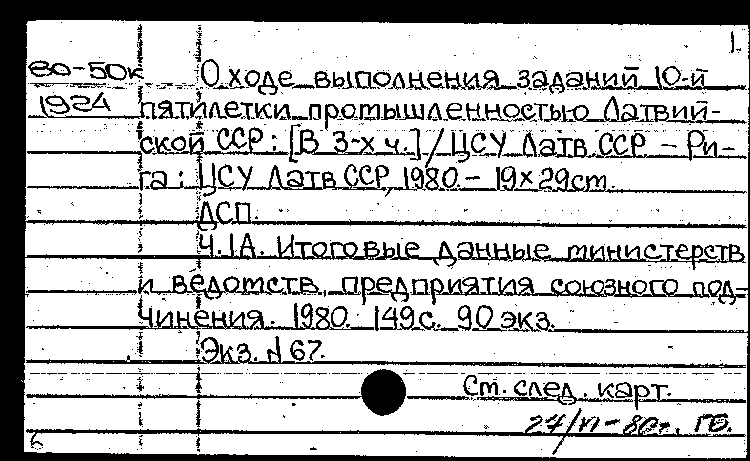 1.
80-50к О ходе выполнения заданий 10-й
1924 пятилетки промышленностью Латвий-
ской ССР: [В 3-х ч.] / ЦСУ Латв. ССР. – Ри-
га: ЦСУ Латв ССР, 1980. – 19×29 cm.
ДСП.
Ч.1А. Итоговые данные министерств
и ведомств, предприятия союзного под-
чинения. 1980. 149 с. 90 экз.
Экз. N 67.
Cm. след. карт.
24/VI-80г. ГБ.
6